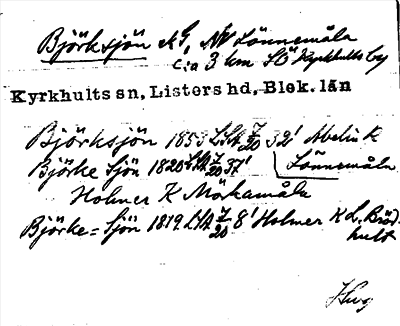 Björksjön XG, NV Lönnemåla
c:a 3 km SÖ Kyrkhults by
Kyrkhults sn, Listers hd, Blek. län
Björksjön 1853 LSA 7/20 32' Abelin K
Björke Sjön 1820 LSA 7/20 37' Lönnemåla
Holmer K Mökamåla
Björke=Sjön 1819 LSA 7/20 8' Holmer K L. Bröd-
hult